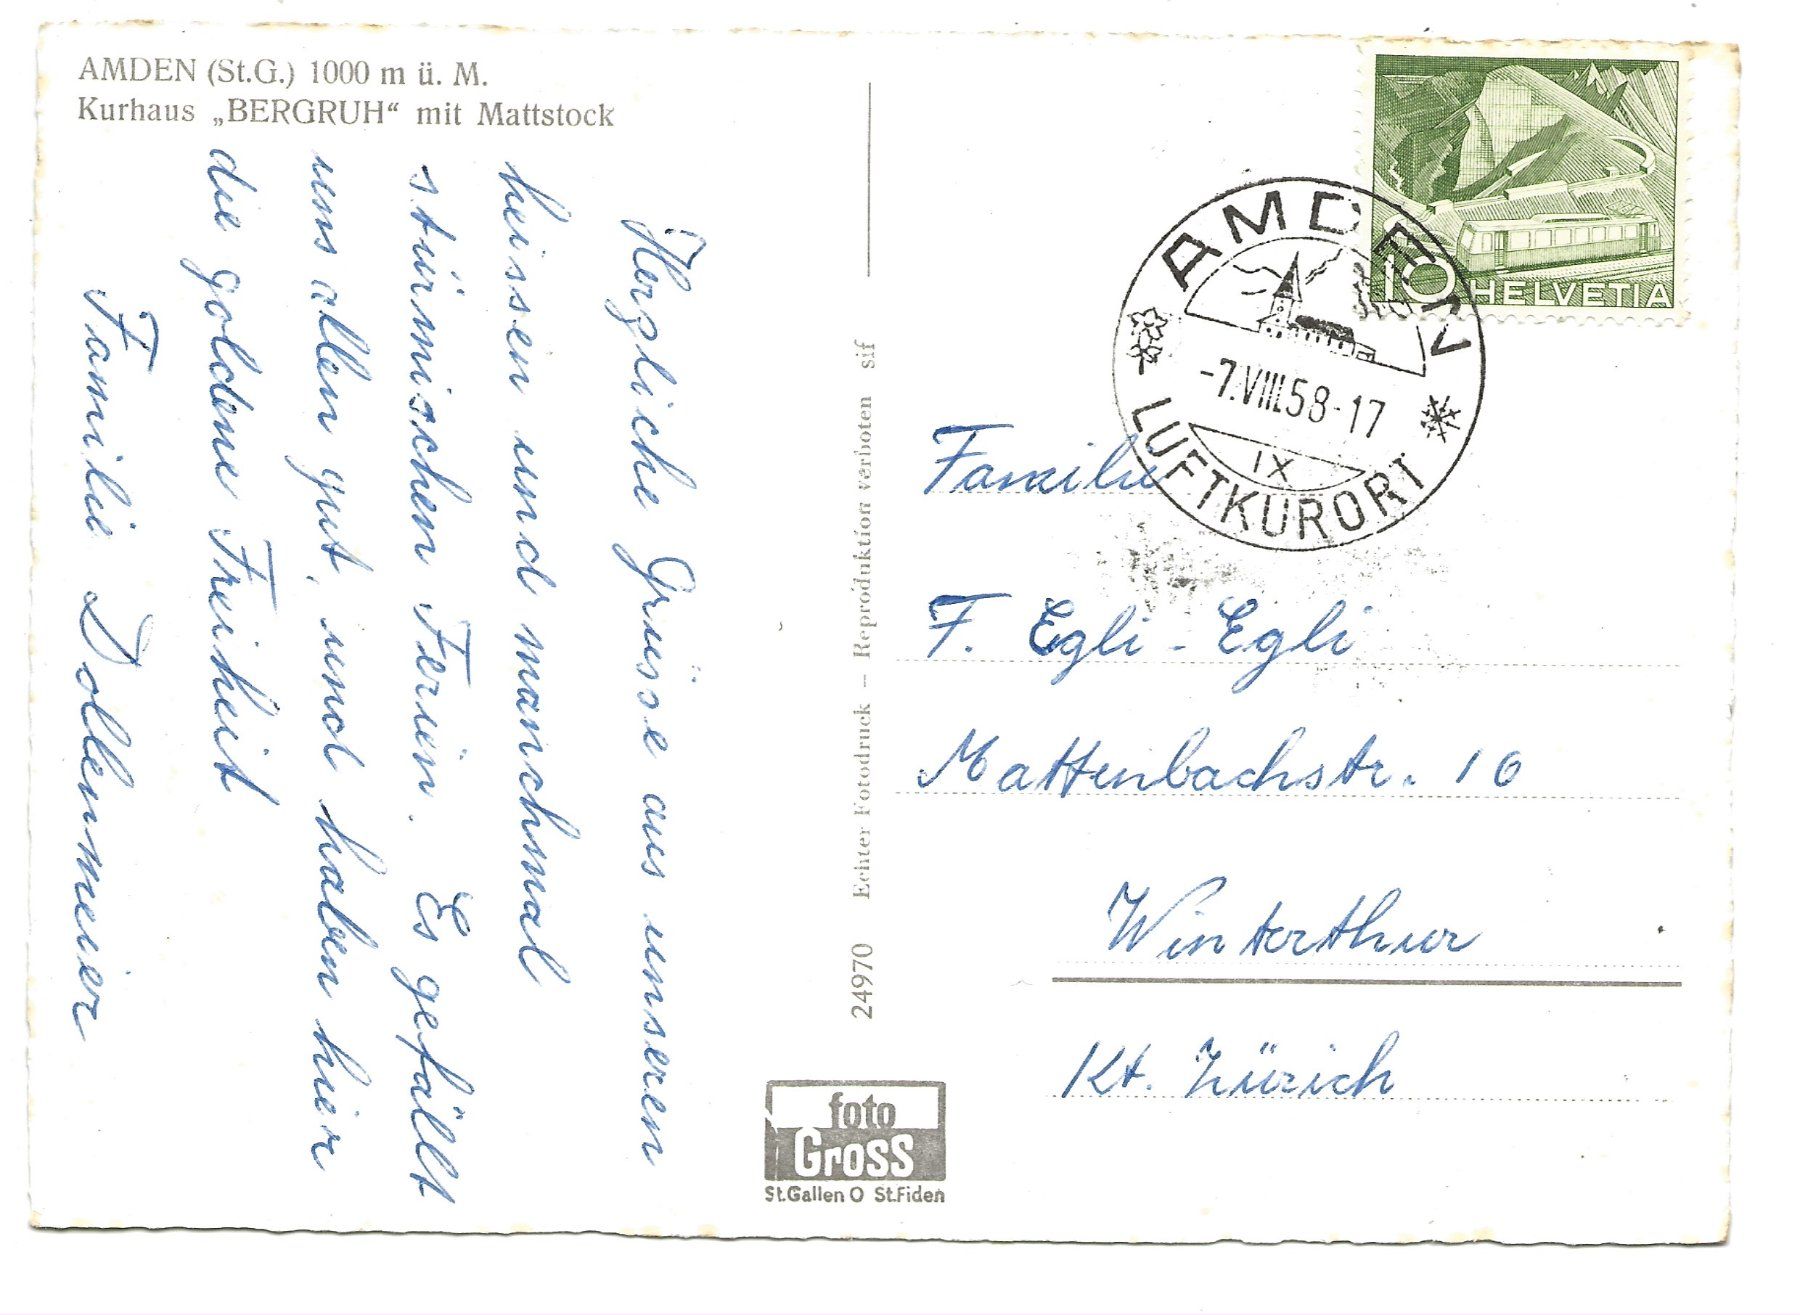 AMDEN (St.G.) 1000 m ü. M.
Kurhaus „BERGRUH“ mit Mattstock
Herzliche Grüsse aus unseren
heissen und manchmal
stürmischen Ferien. Es gefällt
uns allen gut, und haben hier
die goldene Freiheit
Familie Dollenmeier
24970 Echter Fotodruck – Reproduktion verboten sif
foto
Gross
St.Gallen O St.Fiden
10 HELVETIA
AMDEN
-7.VIII.58-17
IX
LUFTKURORT
Familie
F. Egli - Egli
Mattenbachstr. 10
Winterthur
Kt. Zürich